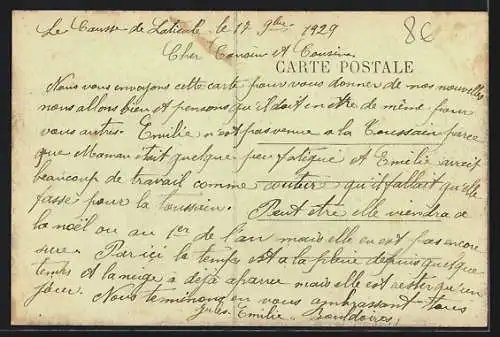 Le Causse de Laticule le 17 9bre 1929
8C
Cher Cousin et Cousine
CARTE POSTALE
Nous vous envoyons cette carte pour vous donner de nos nouvelles
nous allons bien et pensons qu'il doit en etre de même pour
vous autres. Emilie n'est pas venue a la Toussain parce
que Maman était quelque peu fatigué et Emilie avait
beaucoup de travail comme couture qu'il fallait qu'elle
fasse pour la toussain. Peut etre elle viendra a
la nöel ou au 1er de l'an mais elle en est pas encore
sure. Par ici le temps est a la pluie depuis quelque
temps et la neige à déjà aparue mais elle est rester qu'un
jour. Nous terminons en vous ambrassant tous
Jules Emilie